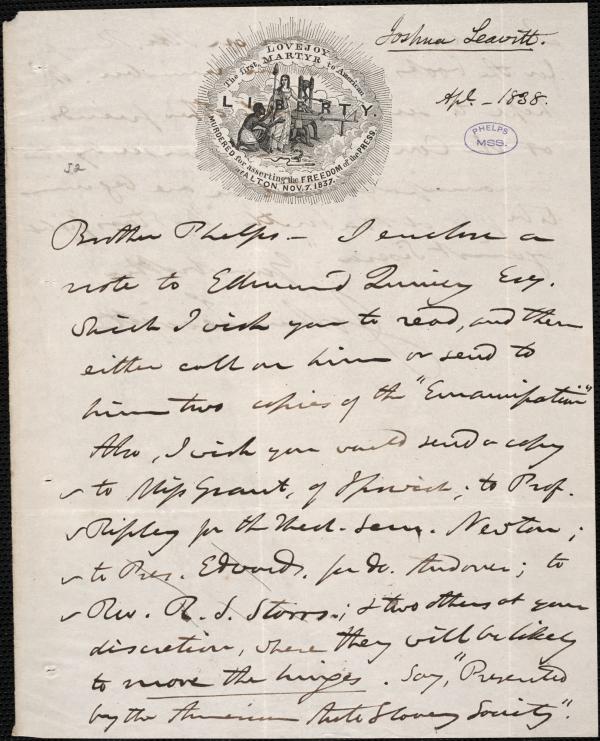 Joshua Leavitt.
LOVEJOY
The first MARTYR to American
LIBERTY.
MURDERED for asserting the FREEDOM of the PRESS.
At ALTON NOV. 7. 1837.
Apl. - 1838.
PHELPS
MSS.
52
Brother Phelps - I enclose a
note to Edmund Quincy Esq.
which I wish you to read, and then
either call on him or send to
him two copies of the "Emancipation"
Also, I wish you would send a copy
to Miss Grant, of Ipswich; to Prof.
Ripley for th Theol. Sem. Newton;
to Pres. Edwards, for do. Andover; to
Rev. R. S. Storrs; & two others at your
discretion, where they will be likely
to move the hinges. Say, "Presented
by the American Anti Slavery Society".